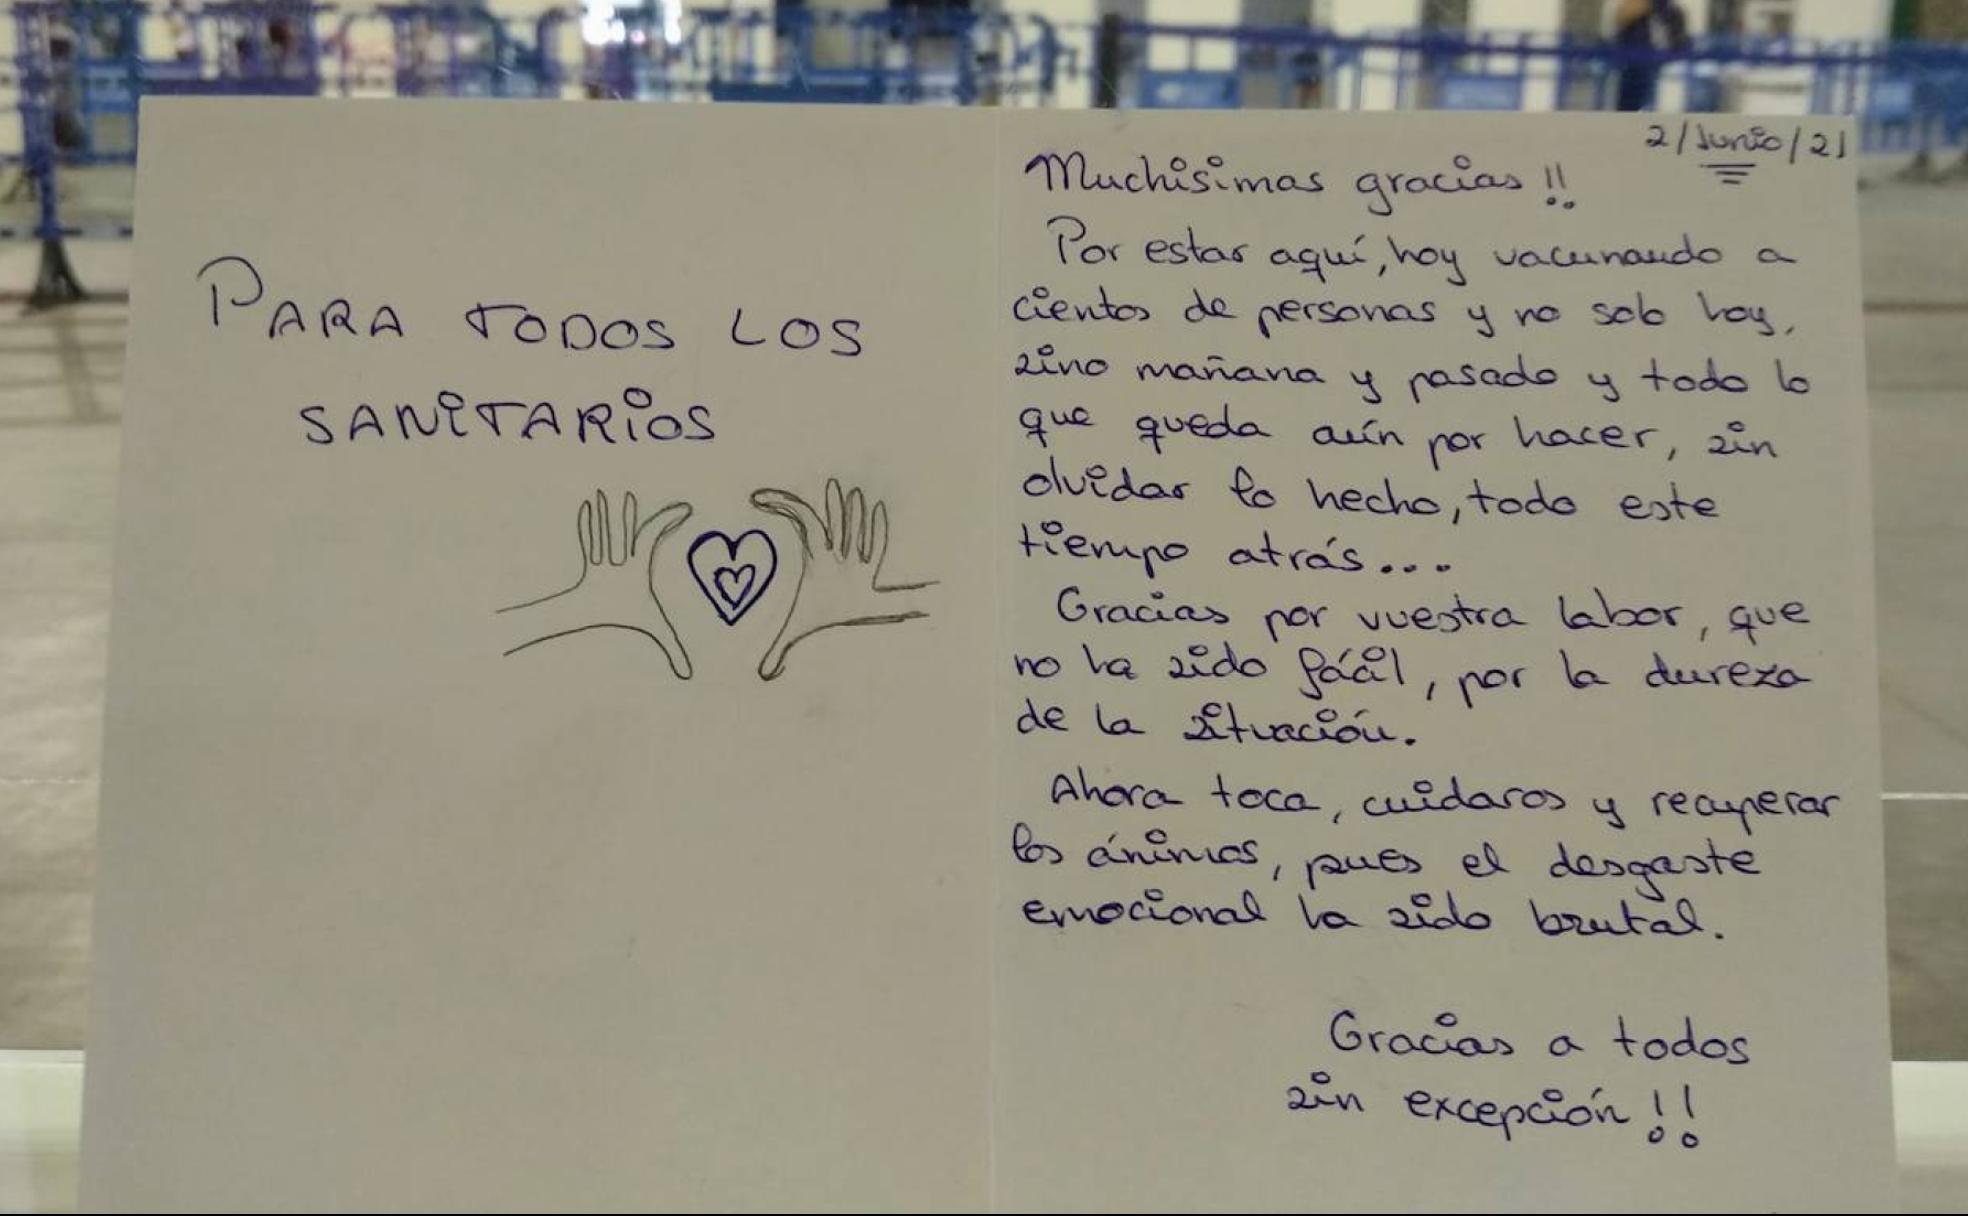 PARA TODOS LOS
SANITARIOS
2/Junio/21
Muchisimas gracias!!
Por estar aquí, hoy vacunando a
cientos de personas y no solo hoy,
sino mañana y pasado y todo lo
que queda aún por hacer, sin
olvidar lo hecho, todo este
tiempo atrás...
Gracias por vuestra labor, que
no ha sido fácil, por la dureza
de la situación.
Ahora toca, cuidaros y recuperar
los ánimos, pues el desgaste
emocional ha sido brutal.
Gracias a todos
sin excepción!!